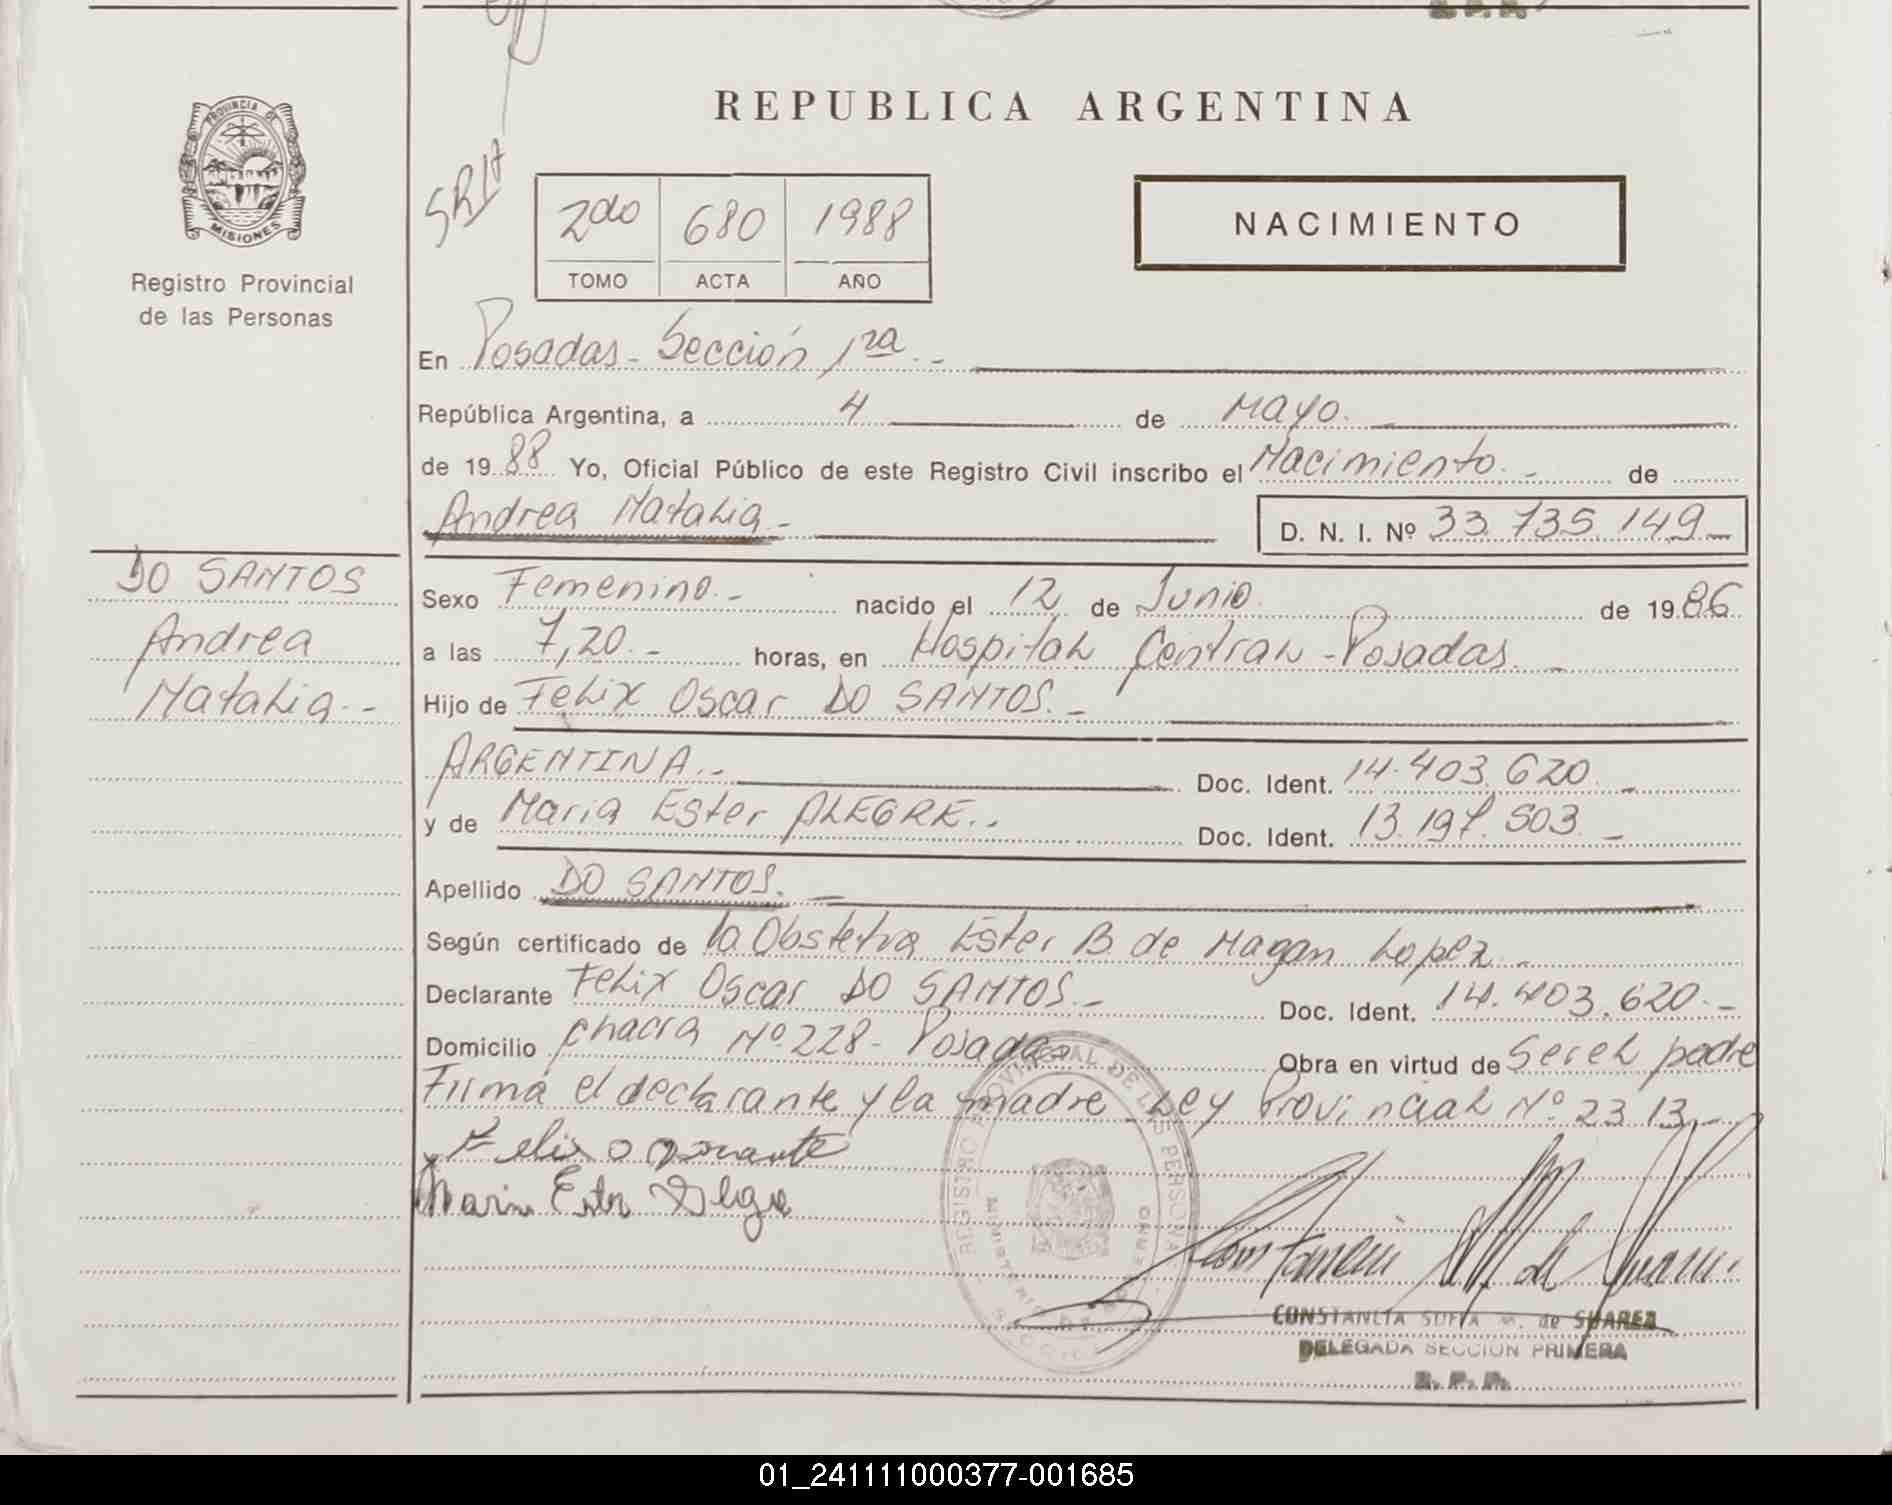 REPUBLICA ARGENTINA
PROVINCIA DE
MISIONES
Registro Provincial
de las Personas
2do 680 1988
TOMO ACTA AÑO
NACIMIENTO
En Posadas - Sección 1ra.-
República Argentina, a 4 de Mayo.
de 1988 Yo, Oficial Público de este Registro Civil inscribo el Nacimiento.- de
Andrea Natalia.-
D. N. I. Nº 33.735.149-
DO SANTOS
Andrea
Natalia.-
Sexo Femenino.- nacido el 12 de Junio. de 1986
a las 7,20.- horas, en Hospital Central - Posadas.-
Hijo de Felix Oscar DO SANTOS.-
ARGENTINA.- Doc. Ident. 14.403.620.-
y de Maria Ester ALEGRE.- Doc. Ident. 13.197.503.-
Apellido DO SANTOS.-
Según certificado de la Obstetra Ester B. de Magan Lopez.-
Declarante Felix Oscar DO SANTOS.- Doc. Ident. 14.403.620.-
Domicilio chacra Nº 228 - Posadas Obra en virtud de ser el padre
Firma el declarante y la madre Ley Provincial Nº 2313.-
Felix
Maria Ester Alegre
REGISTRO PROVINCIAL DE LAS PERSONAS
CONSTANCIA SOFIA M. de SUAREZ
DELEGADA SECCION PRIMERA
R. P. P.
01_241111000377-001685